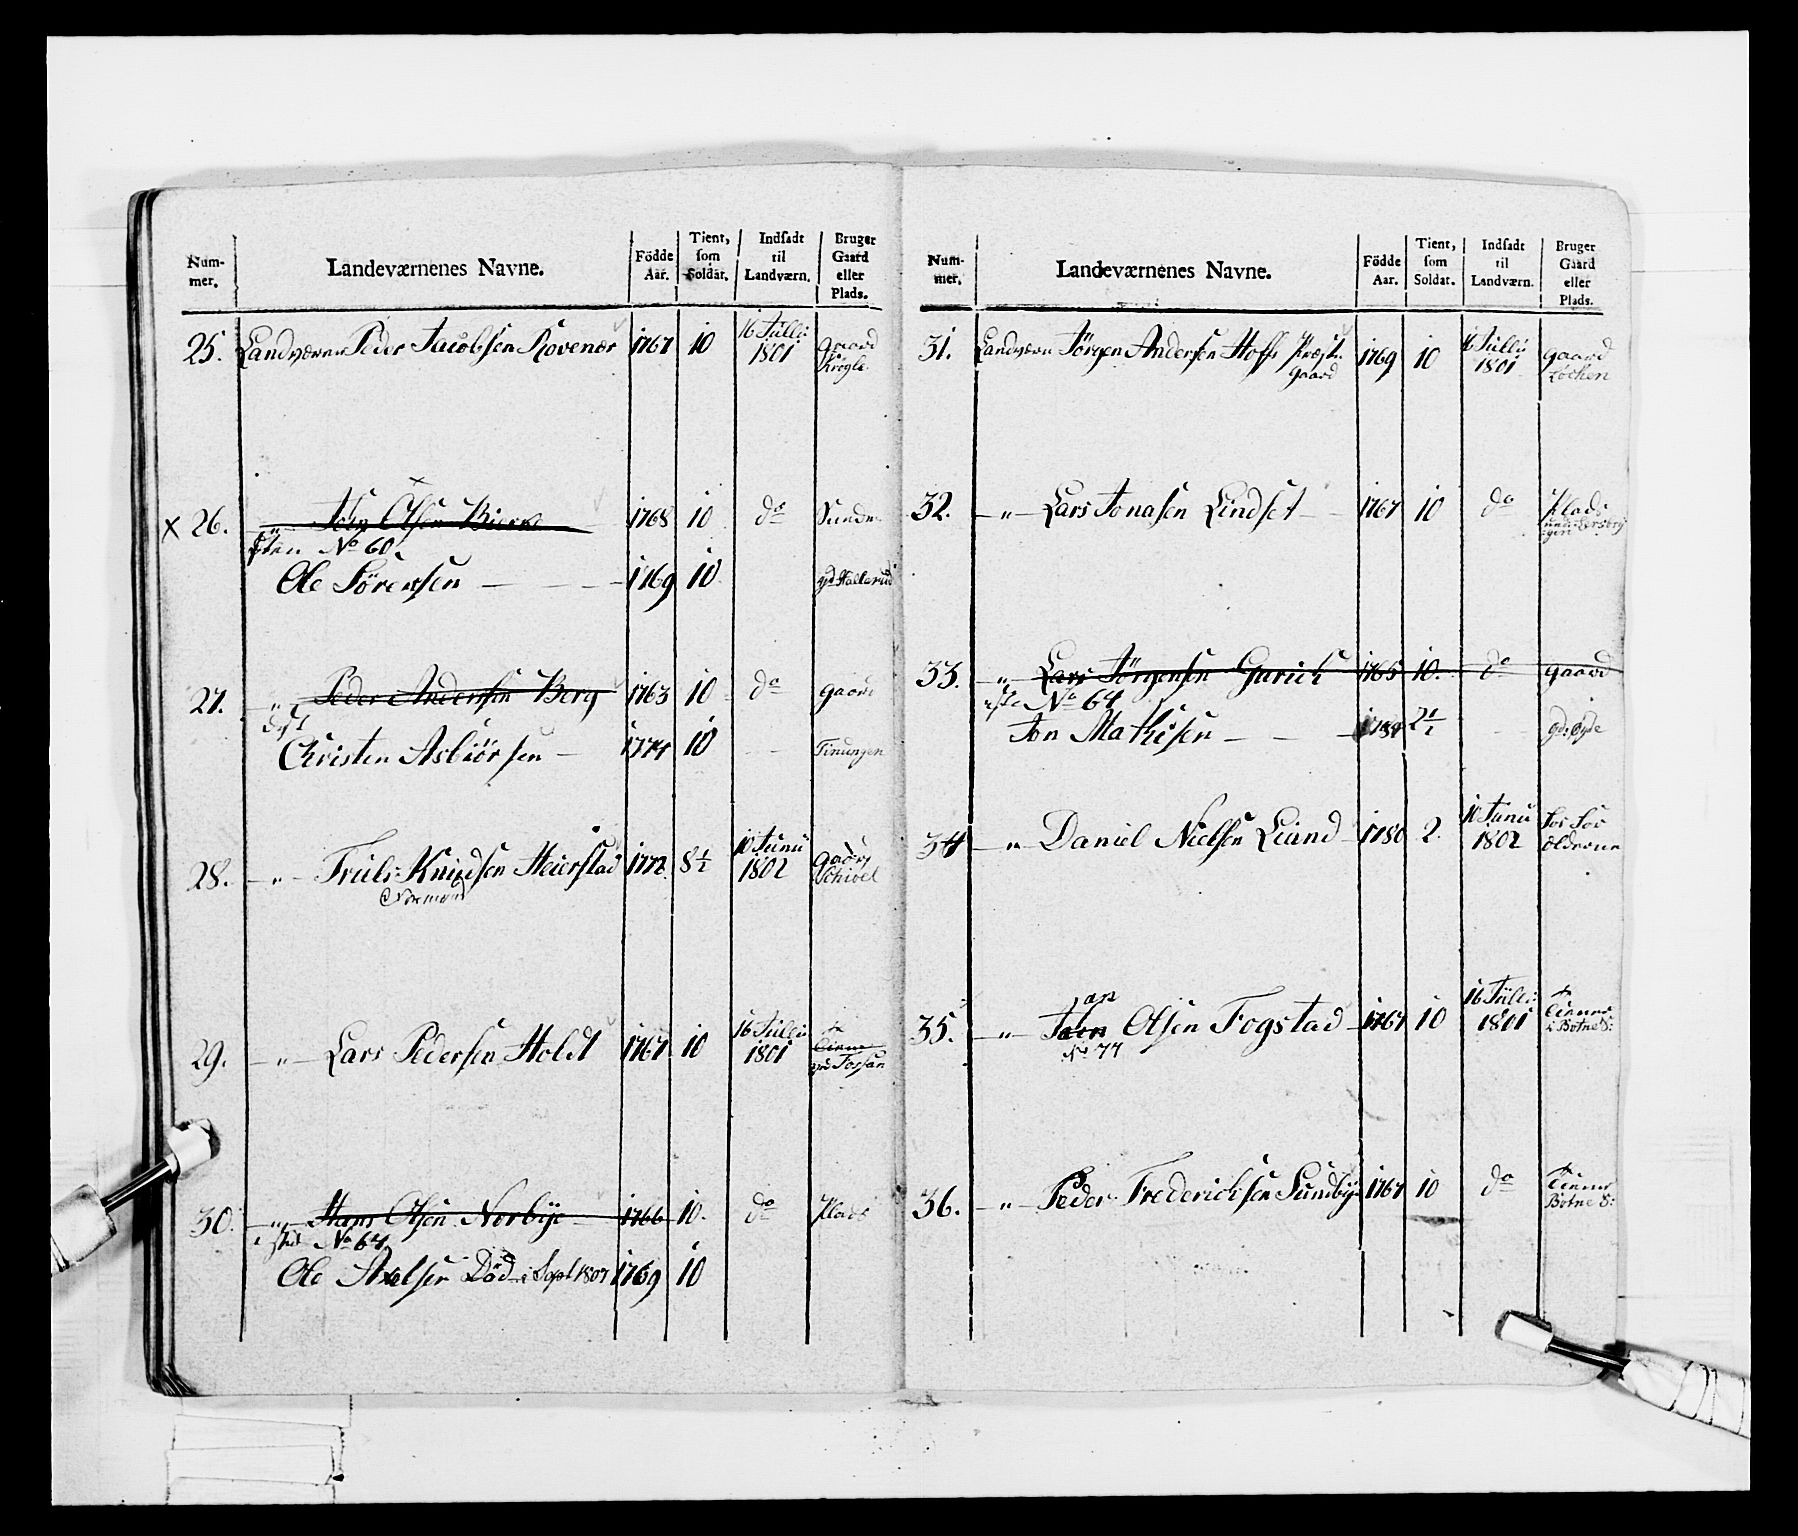 Num-mer. Landeværnenes Navne. Födde Aar. Tient, som Soldat. Indsadt til Landværn. Bruger Gaard eller Plads.
25. Landværn Peder Jacobsen Rovenær 1767 10 16 Julli 1801 Gaard Krogle
x 26. " Olsen Bierke 1768 10 do Sunde
No 60.
Ole Sörensen 1769 10 gd Hallerud
27. " Peder Andersen Berg 1763 10 do Gaard
Christen Asbiörsen 1774 10
28. " Truls Knudsen Heierstad 1772 8½ 10 Junii 1802 Gaard
29. " Lars Pedersen Holdt 1767 10 16 Julli 1801 gd Fossan
30. " Hans Olsen Norbye 1766 10. do Plads
No 64.
Ole Axelsen Död i Sept 1807 1769 10
Num-mer. Landeværnenes Navne. Födde Aar. Tient, som Soldat. Indsadt til Landværn. Bruger Gaard eller Plads.
31. Landværn Jörgen Andersen Hoff Præste Gaard 1769 10 16 Julli 1801 Gaard Löcken
32. " Lars Jonasen Lindset 1767 10 do Plads
33. " Lars Jörgensen Gurich 1765 10. do Gaard
No 64
Jon Mathisen
34 " Daniel Nielsen Lund 1780 2. 10 Junii 1802
an
35. " Olsen Fogstad 1767 10 16 Julli 1801 Tienner i Botne S:
No 77
36. " Peder Frederichsen Sundbye 1767 10 do Tienner Botne S: